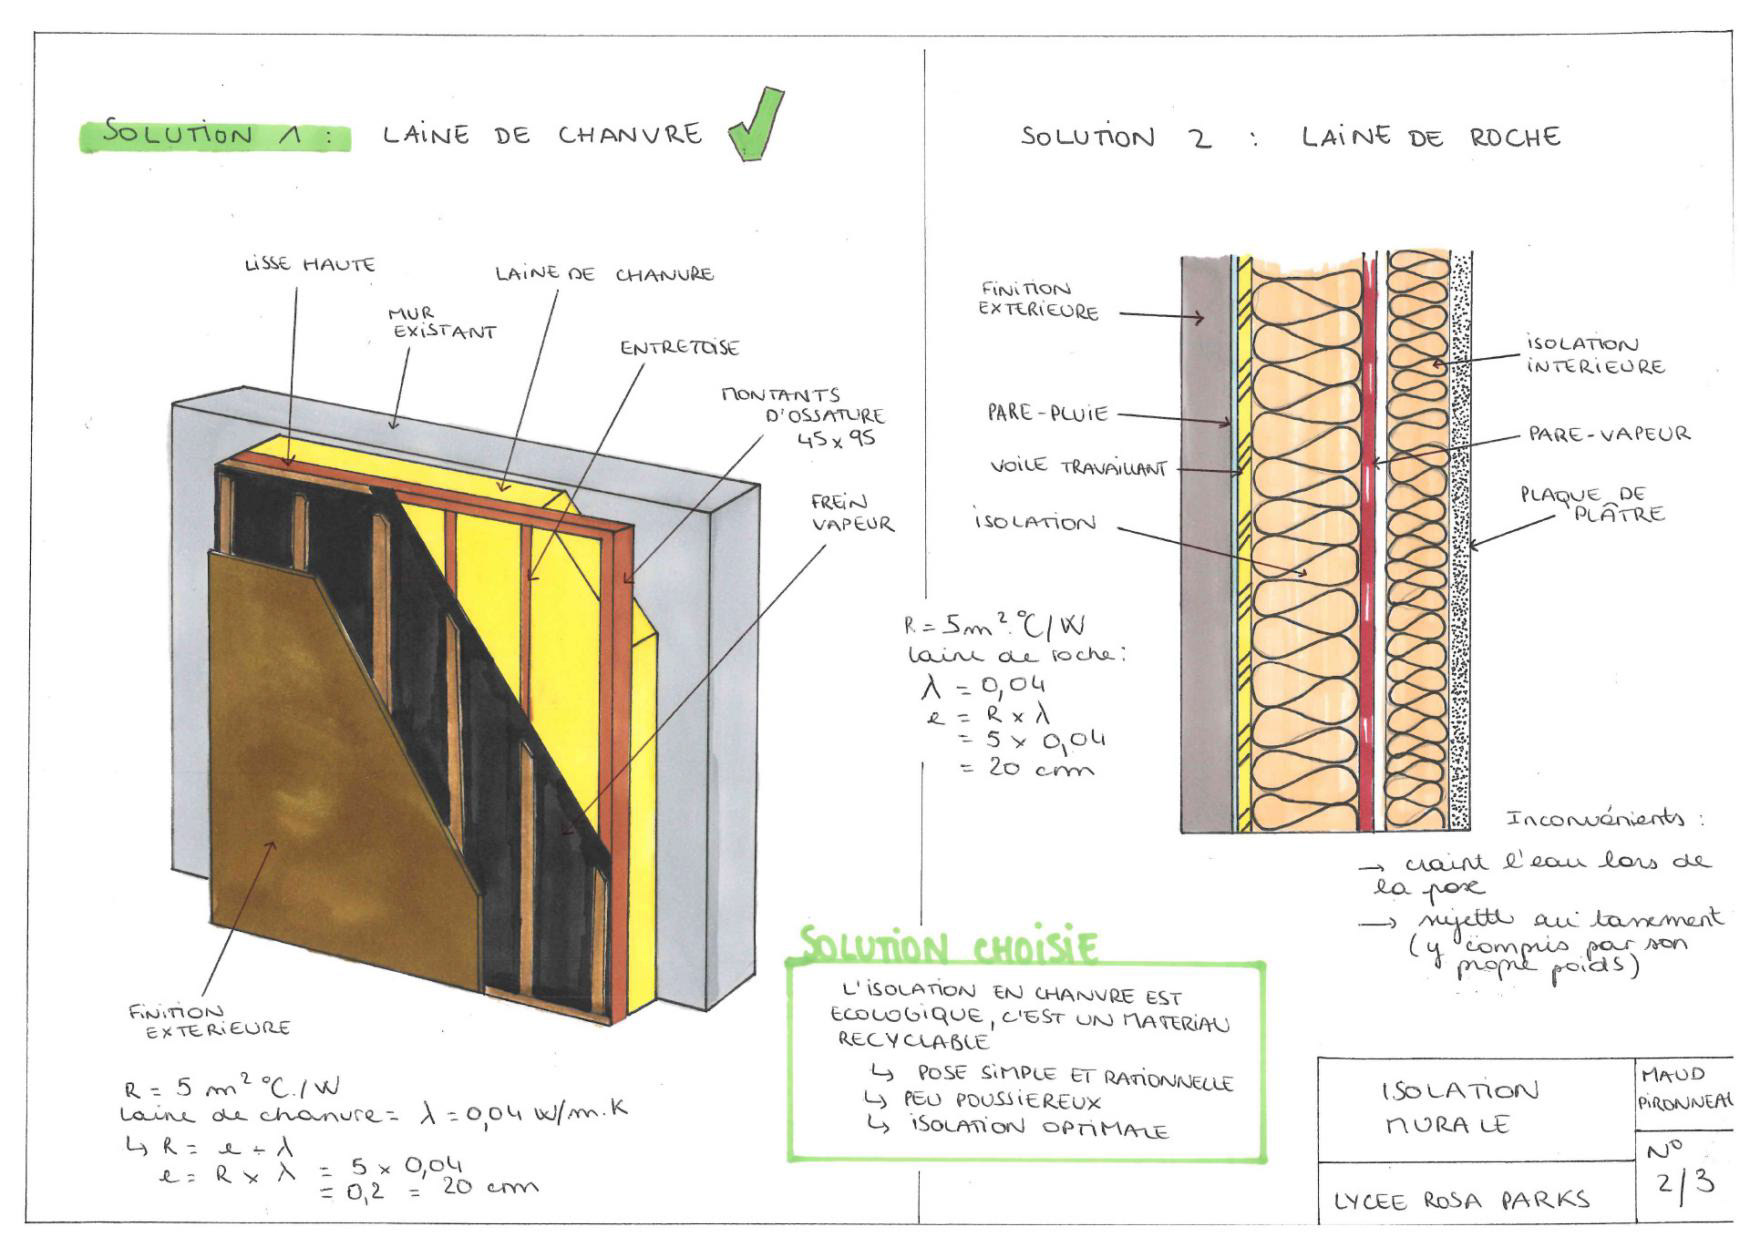 SOLUTION 1 : LAINE DE CHANVRE
LISSE HAUTE
LAINE DE CHANVRE
MUR
EXISTANT
ENTRETOISE
MONTANTS
D'OSSATURE
45 x 95
FREIN
VAPEUR
FINITION
EXTERIEURE
R = 5 m² °C./W
laine de chanvre = λ = 0,04 W/m.K
↳ R = e ÷ λ
e = R x λ = 5 x 0,04
= 0,2 = 20 cm
SOLUTION 2 : LAINE DE ROCHE
FINITION
EXTERIEURE
PARE-PLUIE
VOILE TRAVAILLANT
ISOLATION
ISOLATION
INTERIEURE
PARE-VAPEUR
PLAQUE DE
PLÂTRE
R = 5m².°C/W
laine de roche :
λ = 0,04
e = R x λ
= 5 x 0,04
= 20 cm
Inconvénients :
→ craint l'eau lors de
la pose
→ sujette au tassement
(y compris par son
propre poids)
SOLUTION CHOISIE
L'ISOLATION EN CHANVRE EST
ECOLOGIQUE, C'EST UN MATERIAU
RECYCLABLE
↳ POSE SIMPLE ET RATIONNELLE
↳ PEU POUSSIEREUX
↳ ISOLATION OPTIMALE
ISOLATION
MURALE
MAUD
PIRONNEAU
LYCEE ROSA PARKS
N°
2/3